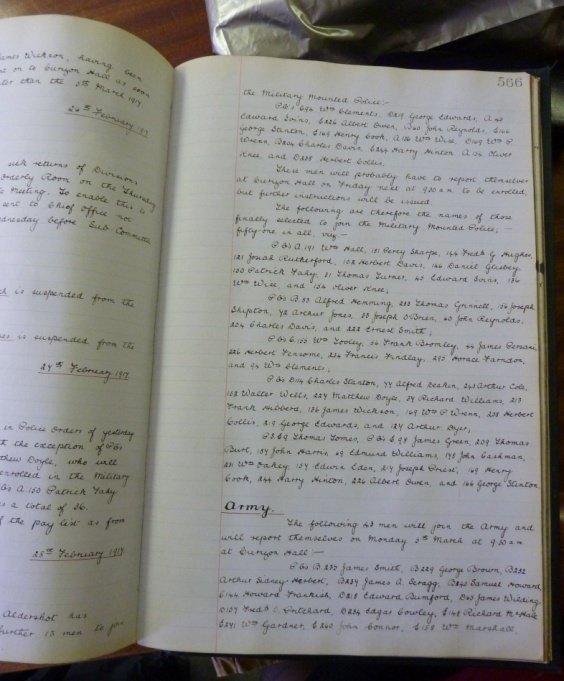 James Wickson, having been
on to Curzon Hall as soon
later than the 5th March 1917
26th February 1917
returns of Divisions
Orderly Room on the Thursday
Meeting. To enable this
sent to Chief Office not
Wednesday before Sub-Committee
is suspended from the
is suspended from the
27th February 1917
in Police Orders of yesterday
the exception of PCs
Matthew Doyle, who will
enrolled in the Military
PCs A.180 Patrick Fahy
a total of 36.
the pay list as from
28th February 1917
Aldershot has
further 13 men to join
566
the Military Mounted Police:-
Wm Clements, D219 George Edwards, A 40
Edward Evins, E226 Albert Owen, B60 John Reynolds, E166
George Stanton, E169 Henry Cook, A136 Wm Wise, D169 Wm P
Wrenn, Charles Davis, E244 Harry Hinton A 106 Oliver
Knee, and D238 Herbert Collis.
These men will probably have to report themselves
at Curzon Hall on Friday next at 9.30 a.m. to be enrolled,
but further instructions will be issued.
The following are therefore the names of those
finally selected to join the Military Mounted Police; —
fifty-one in all, viz:-
PCs A 191 Wm Hall, 181 Percy Sharpe, 164 Fredk G Hughes,
121 Josiah Rutherford, 102 Herbert Davis, 146 Daniel
180 Patrick Fahy, 81 Thomas Turner, 40 Edward Evins, 136
Wm Wise, and 106 Oliver Knee;
PCs B 33 Alfred Henning, Thomas Grinnell, 156 Joseph
Shipton, 42 Arthur Jones, Joseph O'Brien, 60 John Reynolds,
204 Charles Davis, and 222 Ernest Smith;
PCs C Wm Looley, 36 Frank Bromley, 44 James
226 Herbert Francis Findlay, Horace Farndon,
and 94 Wm Clements;
PCs D114 Charles Stanton, 74 Alfred Deakin, 243 Arthur Cole,
Walter Wells, 227 Matthew Doyle, 54 Richard Williams, 213
Frank Hibberd, 186 James Wickson, 169 Wm P Wrenn, 238 Herbert
Collis, 219 George Edwards, and 124 Arthur Dyer,
PS E9 Thomas PCs E 98 James Green, 209 Thomas
Burt, 187 John Harris 69 Edmund Williams, 178 John Cashman,
211 Wm Oakey, 137 Edwin Eden, 217 Joseph Priest, 169 Henry
Cook, 244 Harry Hinton, 226 Albert Owen, and 166 George Stanton.
Army.
The following 43 men will join the Army and
will report themselves on Monday 5th March at 9.30 am
at Curzon Hall :—
PCs B.230 James Smith, B229 George Brown, B232
Arthur Sidney Herbert, B234 James A Scragg, B240 Samuel Howard,
Howard Frankish, D218 Edward Bumford, D63 James Wilding,
D107 Fredk C. Pritchard, D234 Edgar Cowley, E148 Richard
E241 Wm Gardner, E240 John Connor, E158 Wm Marshall,